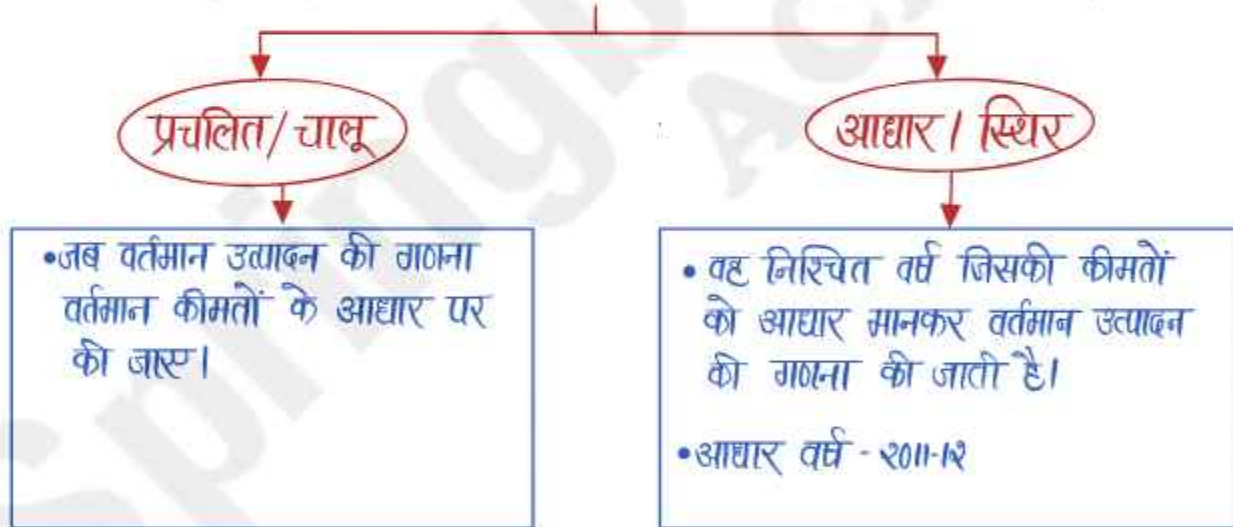 प्रचलित/चालू
आधार / स्थिर
•जब वर्तमान उत्पादन की गणना
वर्तमान कीमतों के आधार पर
की जाए।
• वह निश्चित वर्ष जिसकी कीमतों
को आधार मानकर वर्तमान उत्पादन
की गणना की जाती है।
•आधार वर्ष - २011-1२